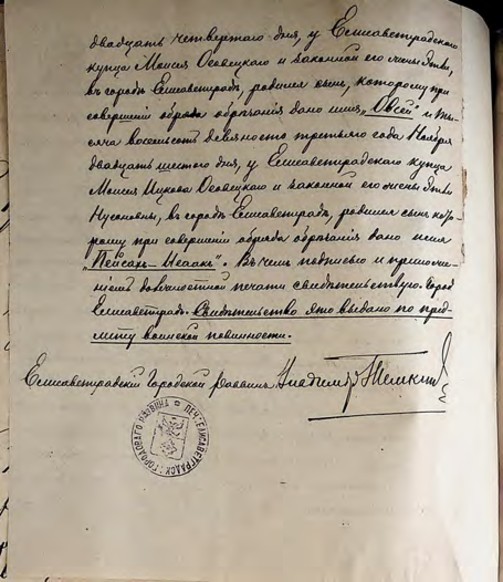 двадцать четвертаго дня, у Елисаветградскаго
купца Моисея Осовецкаго и законной его жены Этли,
въ городѣ Елисаветградѣ, родился сынъ, которому при
совершеніи обряда обрѣзанія дано имя „Овсей" и ты-
сяча восемьсотъ девяносто третьяго года Ноября
двадцать шестого дня, у Елисаветградскаго купца
Моисея Ицкова Осовецкаго и законной его жены Этли
Нусоновны, въ городѣ Елисаветградѣ, родился сынъ кото-
рому при совершеніи обряда обрѣзанія дано имя
„Пейсахъ-Исаакъ". Въ чемъ подписью и приложе-
ніемъ должностной печати свидѣтельствую. Город
Елисаветградъ. Свидѣтельство это выдано по пред-
мету воинской повинности.
Елисаветградскій Городской Раввинъ Владиміръ Темкинъ
ПЕЧ. ЕЛИСАВЕТГРАДСК. ГОРОДОВАГО РАВВИНА